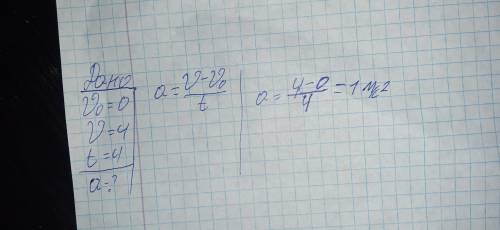 Дано
V₀=0
V=4
t=4
a=?
a=(V-V₀)/t
a=(4-0)/4=1 м/с2